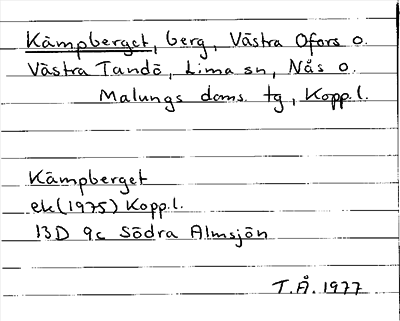 Kämpberget, berg, Västra Ofors o.
Västra Tandö, Lima sn, Nås o.
Malungs doms. tg, Kopp.l.
Kämpberget
ek (1975) Kopp.l.
13D 9c Södra Almsjön
T.Å. 1977